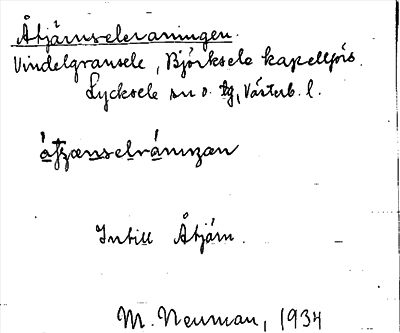 Åtjärnseleraningen.
Vindelgransele, Björksele kapellförs.
Lycksele sn o. tg, Västerb. l.
Intill Åtjärn.
M. Neuman, 1934